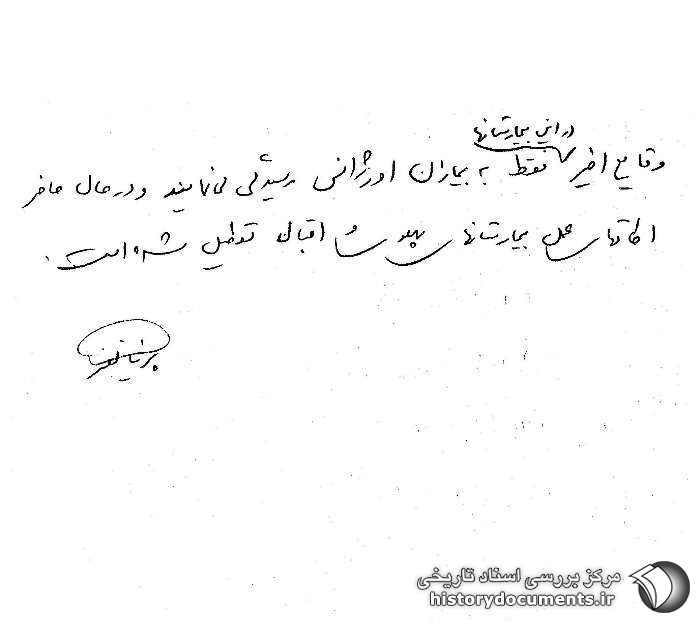 در این بیمارستانها
وقایع اخیر فقط به بیماران اورژانس رسیدگی می‌نمایند و در حال حاضر
اطاقهای عمل بیمارستانهای پهلوی و اقبال تعطیل شده است.
مرکز بررسی اسناد تاریخی
historydocuments.ir